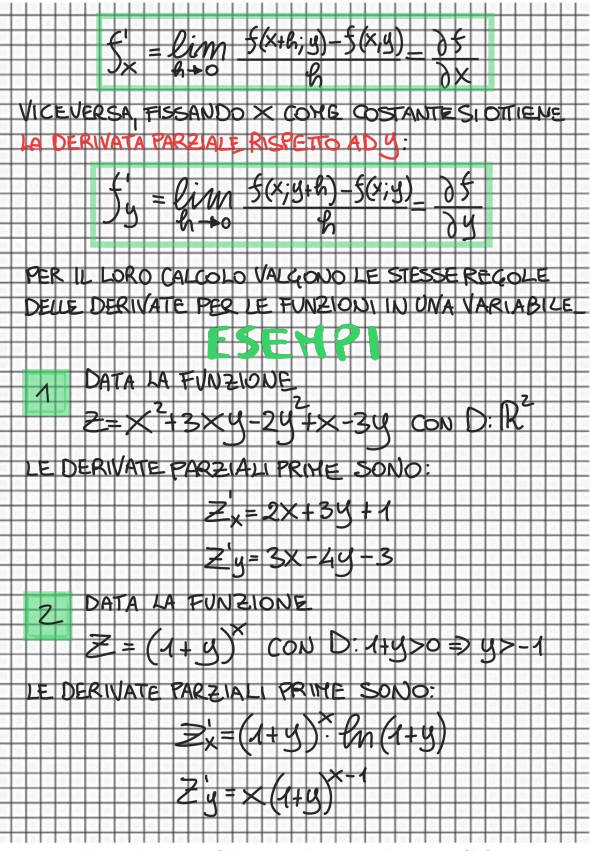 f'x = lim h→0 f(x+h;y)-f(x,y)/h = ∂f/∂x
VICEVERSA, FISSANDO X COME COSTANTE SI OTTIENE
LA DERIVATA PARZIALE RISPETTO AD y:
f'y = lim h→0 f(x;y+h)-f(x;y)/h = ∂f/∂y
PER IL LORO CALCOLO VALGONO LE STESSE REGOLE
DELLE DERIVATE PER LE FUNZIONI IN UNA VARIABILE_
ESEMPI
1 DATA LA FUNZIONE
Z=x²+3xy-2y²+x-3y CON D: ℝ²
LE DERIVATE PARZIALI PRIME SONO:
Z'x=2x+3y+1
Z'y=3x-4y-3
2 DATA LA FUNZIONE
Z=(1+y)^x CON D: 1+y>0 ⇒ y>-1
LE DERIVATE PARZIALI PRIME SONO:
Z'x=(1+y)^x · ln(1+y)
Z'y=x(1+y)^(x-1)